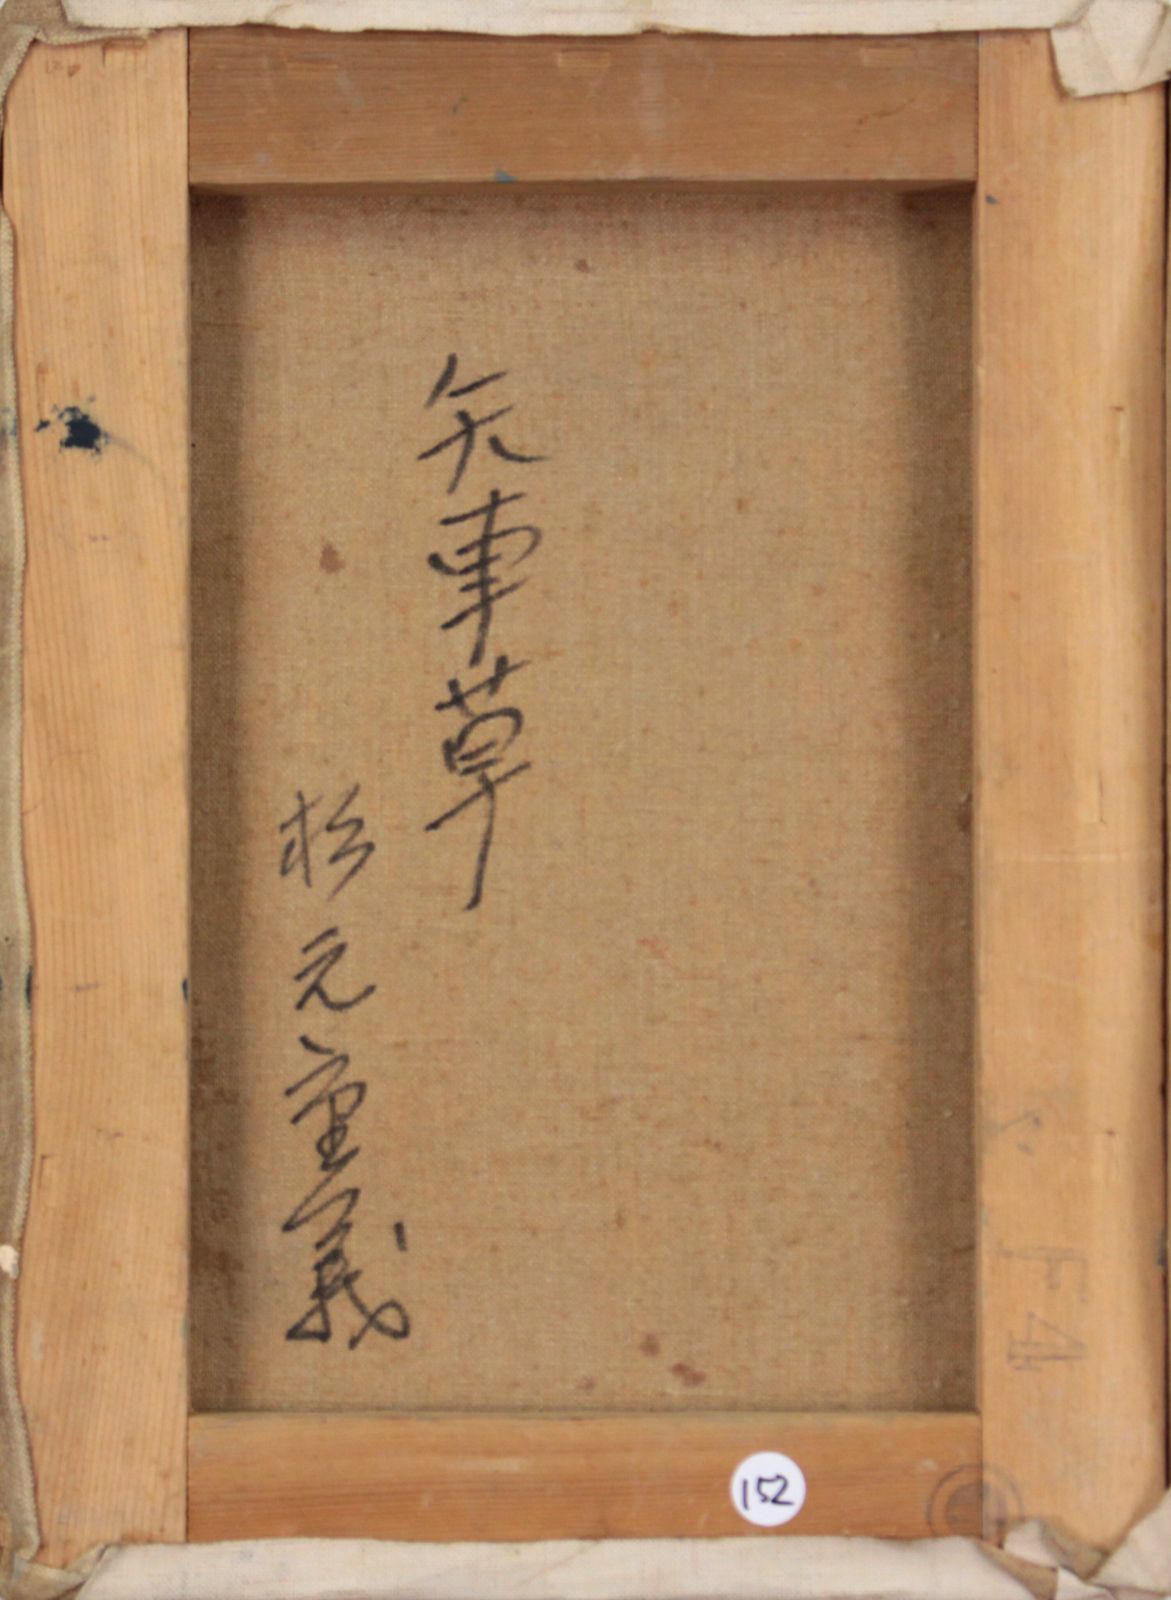 矢車草
松元重義
F4
152